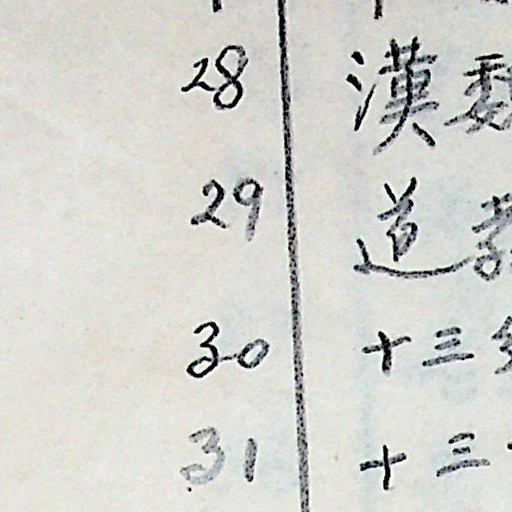 28 漢魏
29 道教
30 十三
31 十三